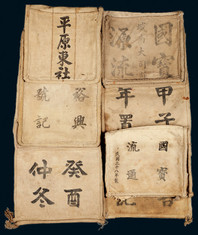 平原東社
裕興
號記
癸酉
仲冬
國寶
源流
甲子
年置
國寶
流通